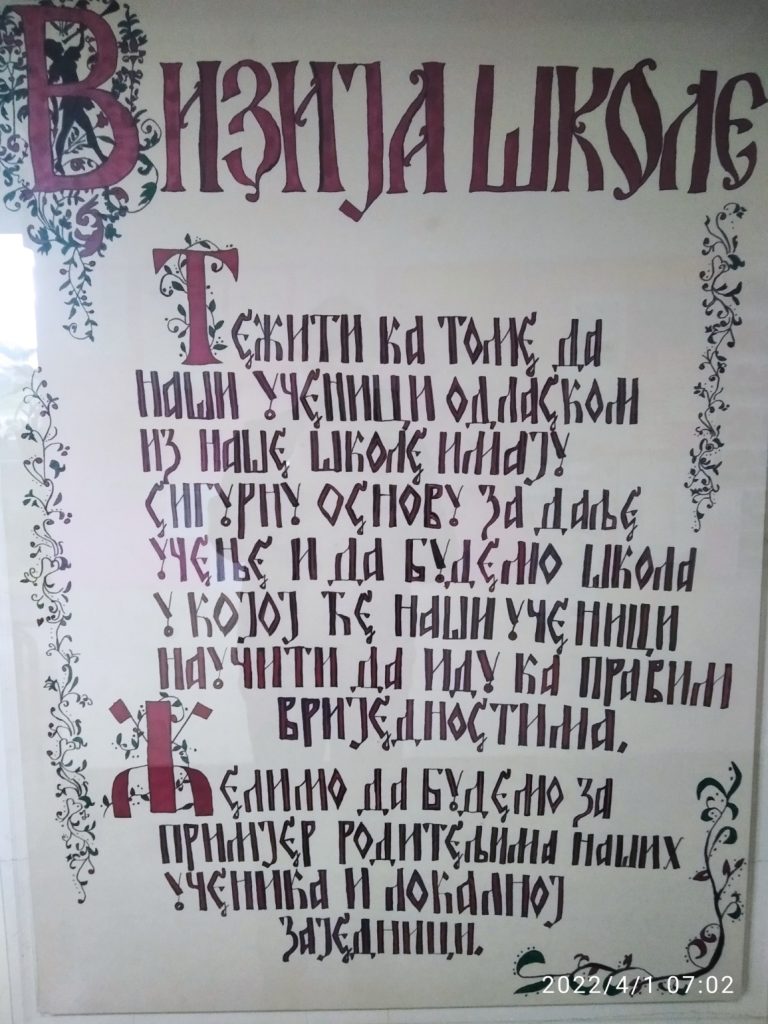 Визија школе
Тежити ка томе да
наши ученици одласком
из наше школе имају
сигурну основу за даље
учење и да будемо школа
у којој ће наши ученици
научити да иду ка правим
вриједностима.
Желимо да будемо за
примјер родитељима наших
ученика и локалној
заједници.
2022/4/1 07:02